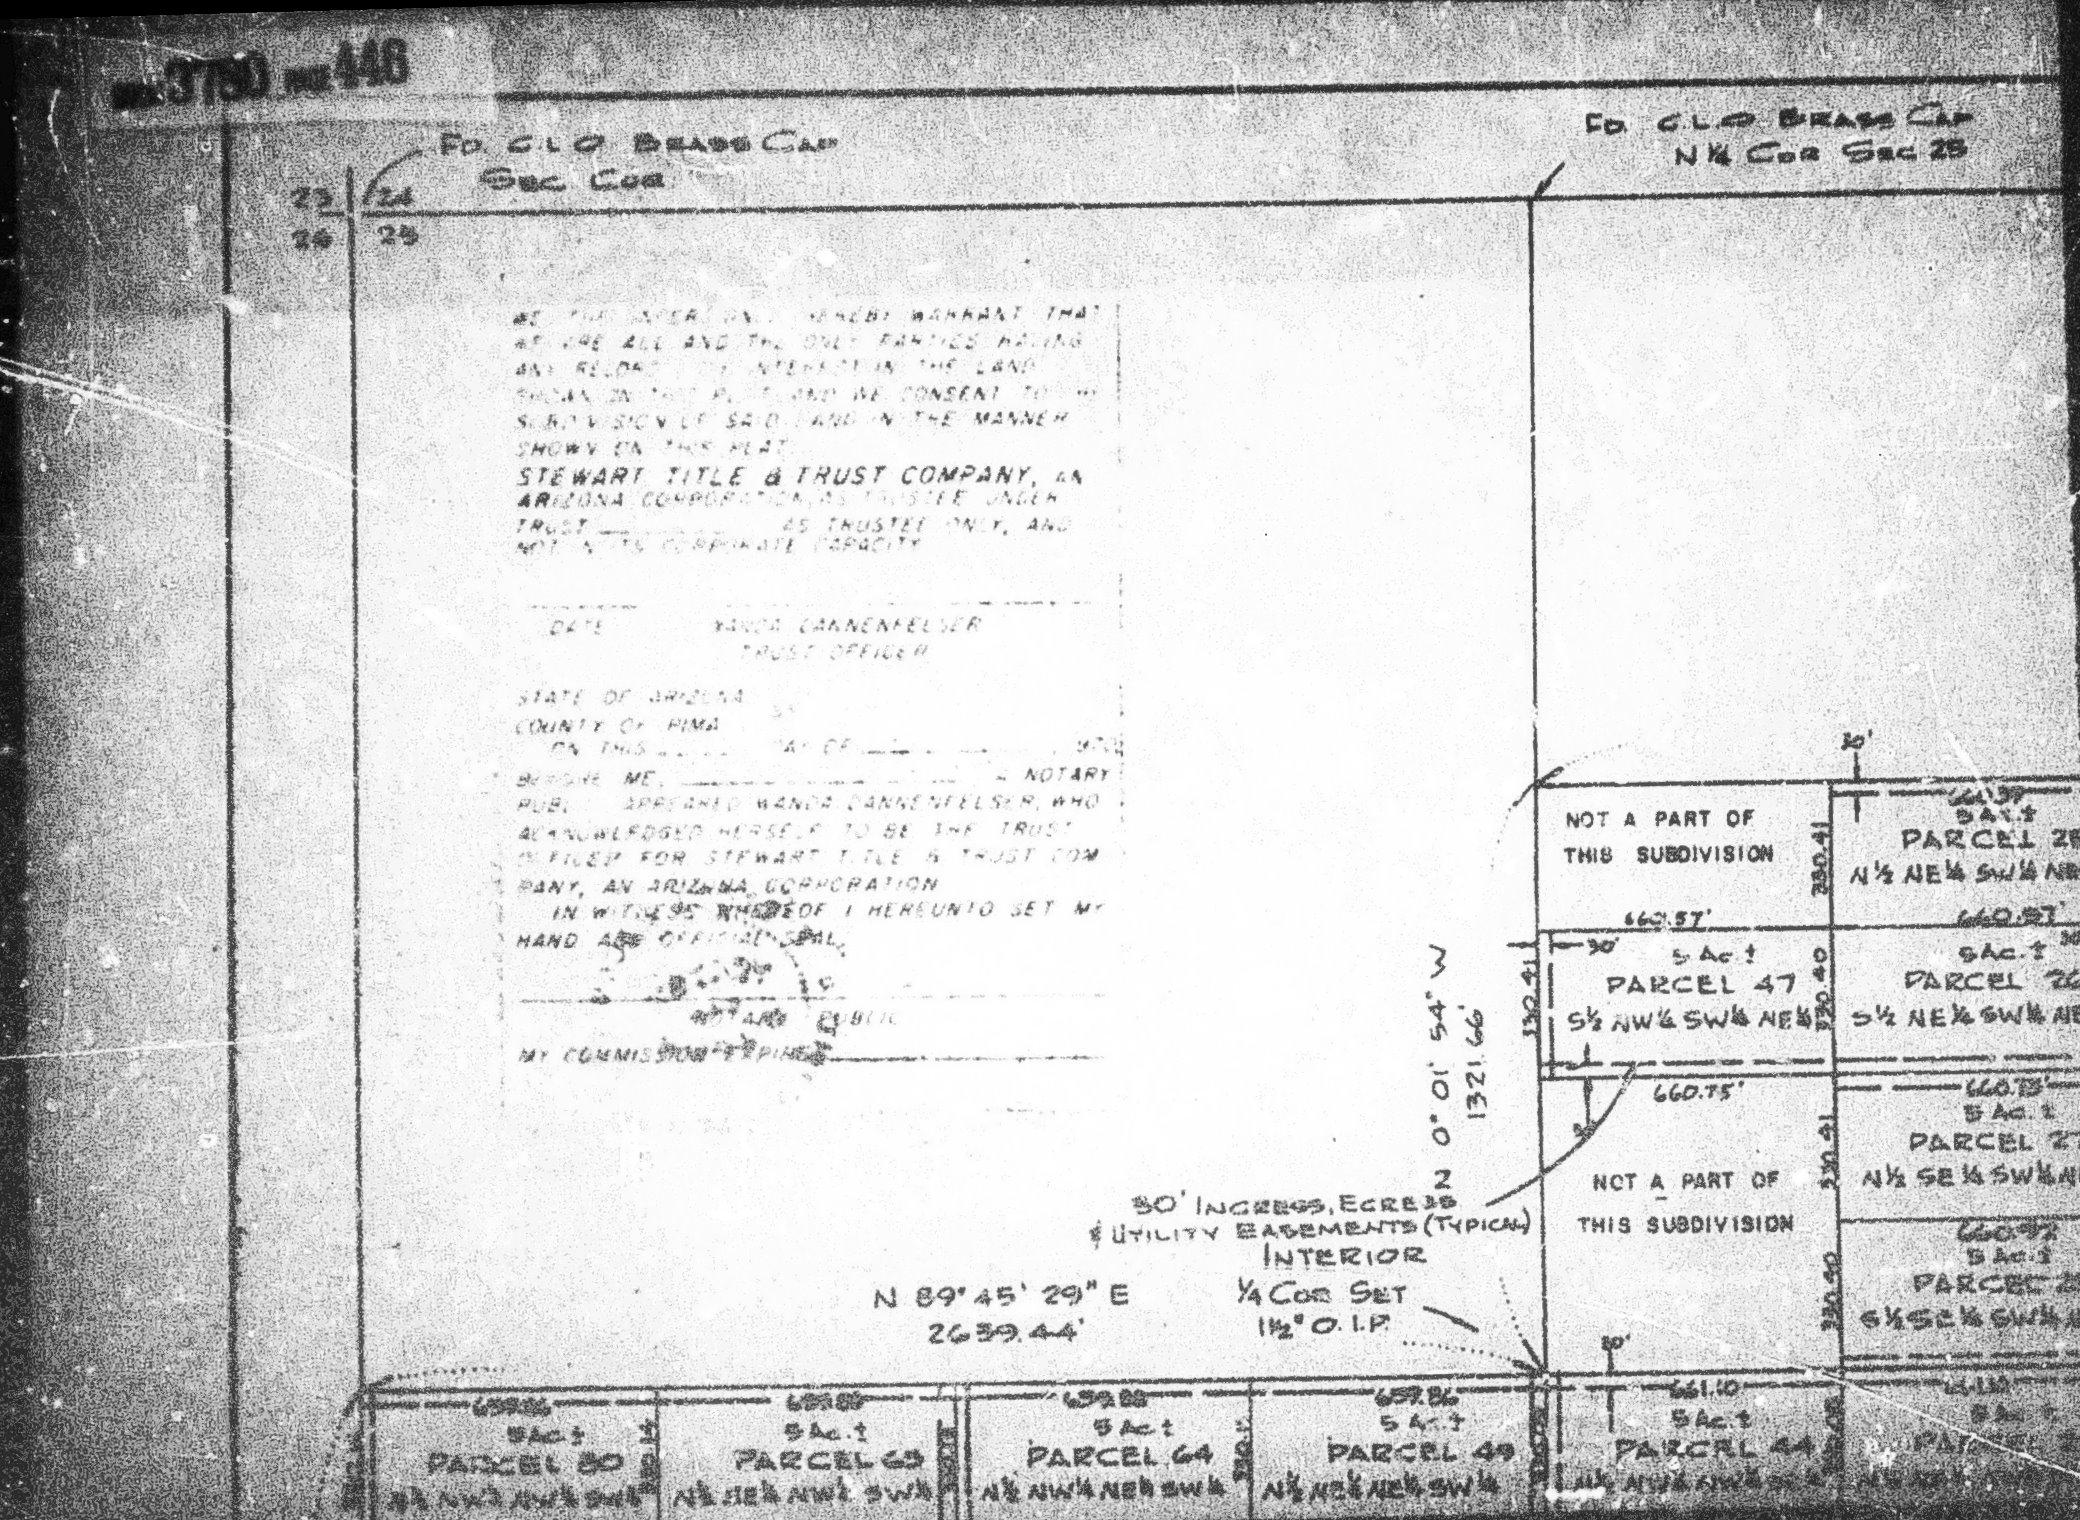 3750 PAGE 446
FD. G.L.O BRASS CAP
SEC COR
23 24
26 25
FD. G.L.O BRASS CAP
N ¼ COR SEC 25
HEREBY WARRANT THAT
WE ARE ALL AND THE ONLY PARTIES HAVING
ANY RECORD INTEREST IN THE LAND
SHOWN ON THIS PLAT AND WE CONSENT TO
SUBDIVISION OF SAID LAND IN THE MANNER
SHOWN ON THIS PLAT
STEWART TITLE & TRUST COMPANY, AN
ARIZONA CORPORATION, AS TRUSTEE UNDER
TRUST ________ AS TRUSTEE ONLY, AND
NOT IN ITS CORPORATE CAPACITY
DATE WANDA DANNENFELSER
TRUST OFFICER
STATE OF ARIZONA
COUNTY OF PIMA SS
ON THIS ____ DAY OF ________
BEFORE ME, ________ A NOTARY
PUBLIC APPEARED WANDA DANNENFELSER, WHO
ACKNOWLEDGED HERSELF TO BE THE TRUST
OFFICER FOR STEWART TITLE & TRUST COM
PANY, AN ARIZONA CORPORATION
IN WITNESS WHEREOF I HEREUNTO SET MY
HAND AND OFFICIAL SEAL,
NOTARY PUBLIC
MY COMMISSION EXPIRES ________
30'
NOT A PART OF
THIS SUBDIVISION
330.41
5 AC.±
PARCEL
N½ NE¼ SW¼
660.57'
660.57'
30'
5 Ac ±
PARCEL 47
S½ NW¼ SW¼ NE¼
330.41
330.40
5 AC.±
PARCEL
S½ NE¼ SW¼
N 0° 01' 54" W
1321.66'
660.75'
660.75'
5 AC. ±
PARCEL
N½ SE¼ SW¼
330.41
NOT A PART OF
THIS SUBDIVISION
660.92
5 AC.±
PARCEL
S½ SE¼ SW¼
330.40
30' INGRESS, EGRESS
& UTILITY EASEMENTS (TYPICAL)
INTERIOR
¼ COR SET
1½" O.I.P.
N 89° 45' 29" E
2639.44'
30'
659.86
5 AC ±
PARCEL 80
N½ NW¼ NW¼ SW¼
659.86
5 AC.±
PARCEL 65
N½ NE¼ NW¼ SW¼
659.86
5 AC ±
PARCEL 64
N½ NW¼ NE¼ SW¼
659.86
5 AC.±
PARCEL 49
N½ NE¼ NE¼ SW¼
661.10
5 AC.±
PARCEL 44
N½ NW¼ NW¼